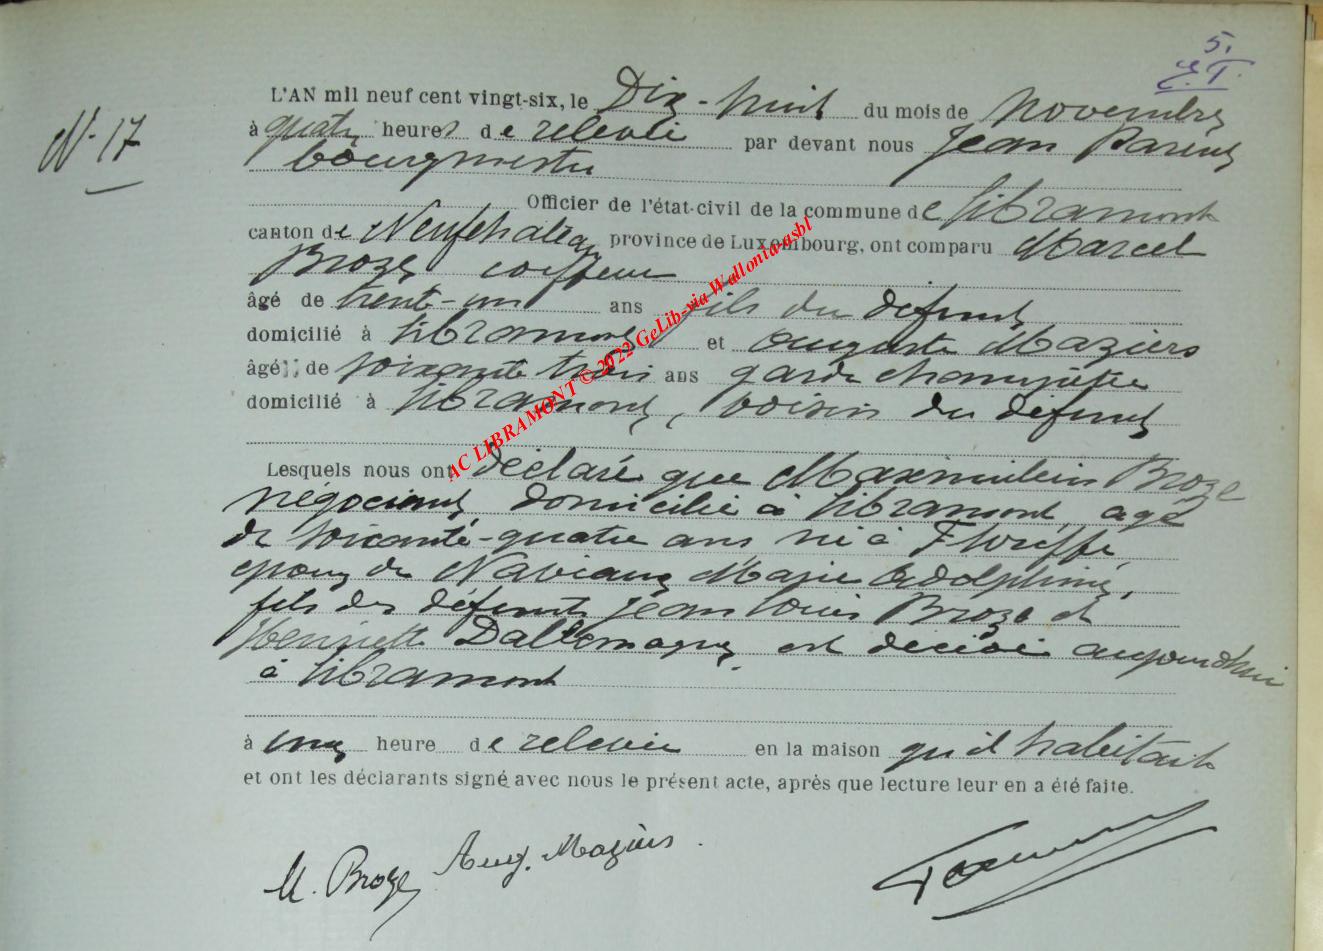 5.
E.T.
N° 17
L'AN mil neuf cent vingt-six, le Dix-huit du mois de novembre
à quatre heures de relevée par devant nous Jean Parent
bourgmestre
Officier de l'état-civil de la commune de Libramont
canton de Neufchateau province de Luxembourg, ont comparu Marcel
Broze coiffeur
âgé de trent-un ans fils du défunt
domicilié à Libramont et Auguste Maziers
âgé de soixante trois ans garde champêtre
domicilié à Libramont, voisin du défunt
Lesquels nous ont déclaré que Maximilien Broze
négociant domicilié à Libramont, agé
de soixante-quatre ans né à Floreffe,
epoux de Naviaux Marie Adolphine,
fils des défunts Jean Louis Broze et
Henriette Dallemagne, est décédé aujourdhui
à Libramont
à une heure de relevée en la maison qu'il habitait
et ont les déclarants signé avec nous le présent acte, après que lecture leur en a été faite.
M. Broze Aug. Maziers.
AC LIBRAMONT © 2022 GeLib-via Wallonia asbl